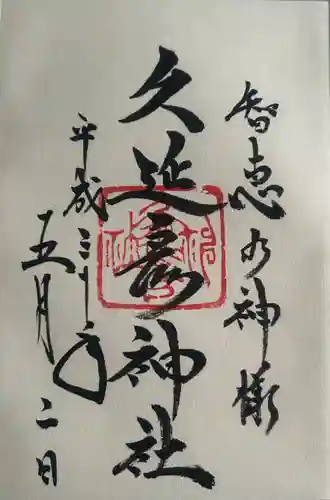 智恵乃神様
久延彦神社
平成三十年
五月二日